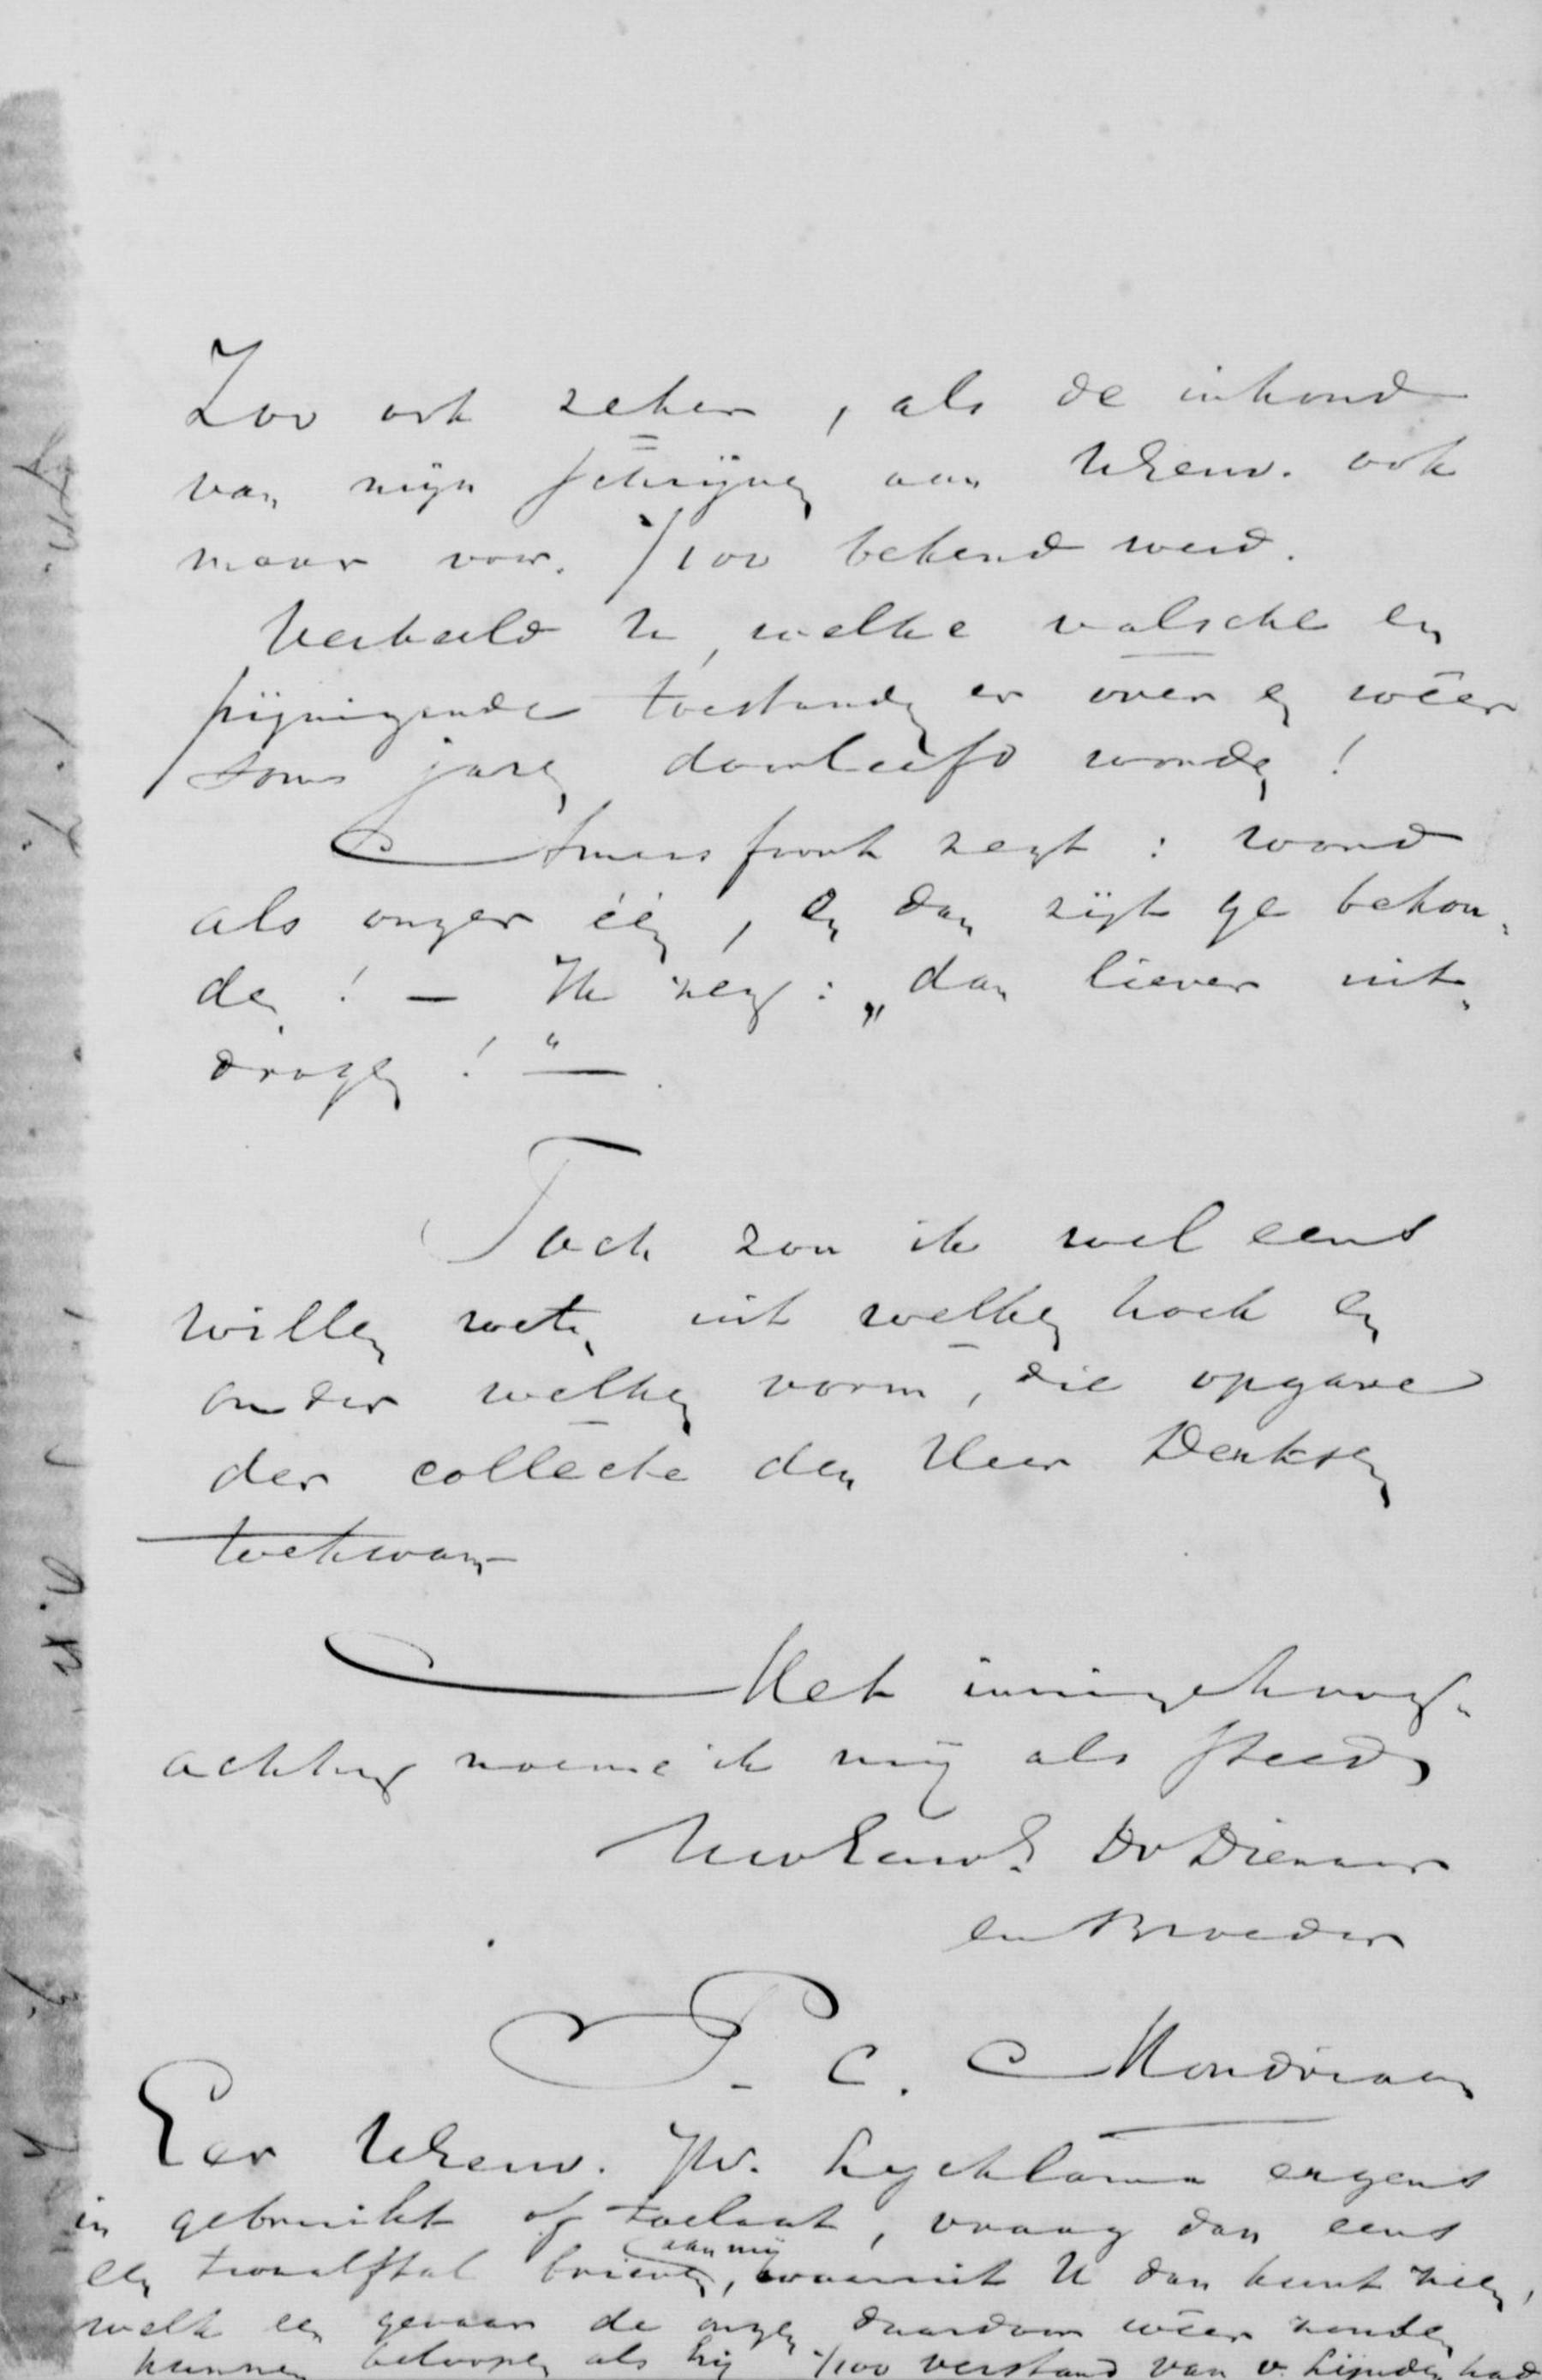 Zoo ook zeker, als de inhoud
van mijn schrijven aan UEerw. ook
maar voor 1/100 bekend werd.
Verbeeld U, welke valsche en
pijnigende toestanden er over en wéér
soms jaren doorleefd worden!
Amersfoort zegt: word
als onzer één, en dan zijt ge behou-
den! — Ik zeg: „dan liever uit-
drogen!" —
Toch zou ik wel eens
willen weten uit welken hoek en
onder welken vorm, die opgave
der collecte den Heer Derksen
toekwam
Met innige hoog-
achting noeme ik mij als steeds
UwEerw. Dv Dienaar
en Broeder
P. C. Mondriaan
Eer UEerw. Jhr. Lycklama ergens
in gebruikt of toelaat, vraag dan eens
een twaalftal brieven aan mij, waaruit U dan kunt zien,
welk een gevaar de onzen daardoor wéér zouden
kunnen beloopen als hij 1/100 verstand van v. Lijnden had